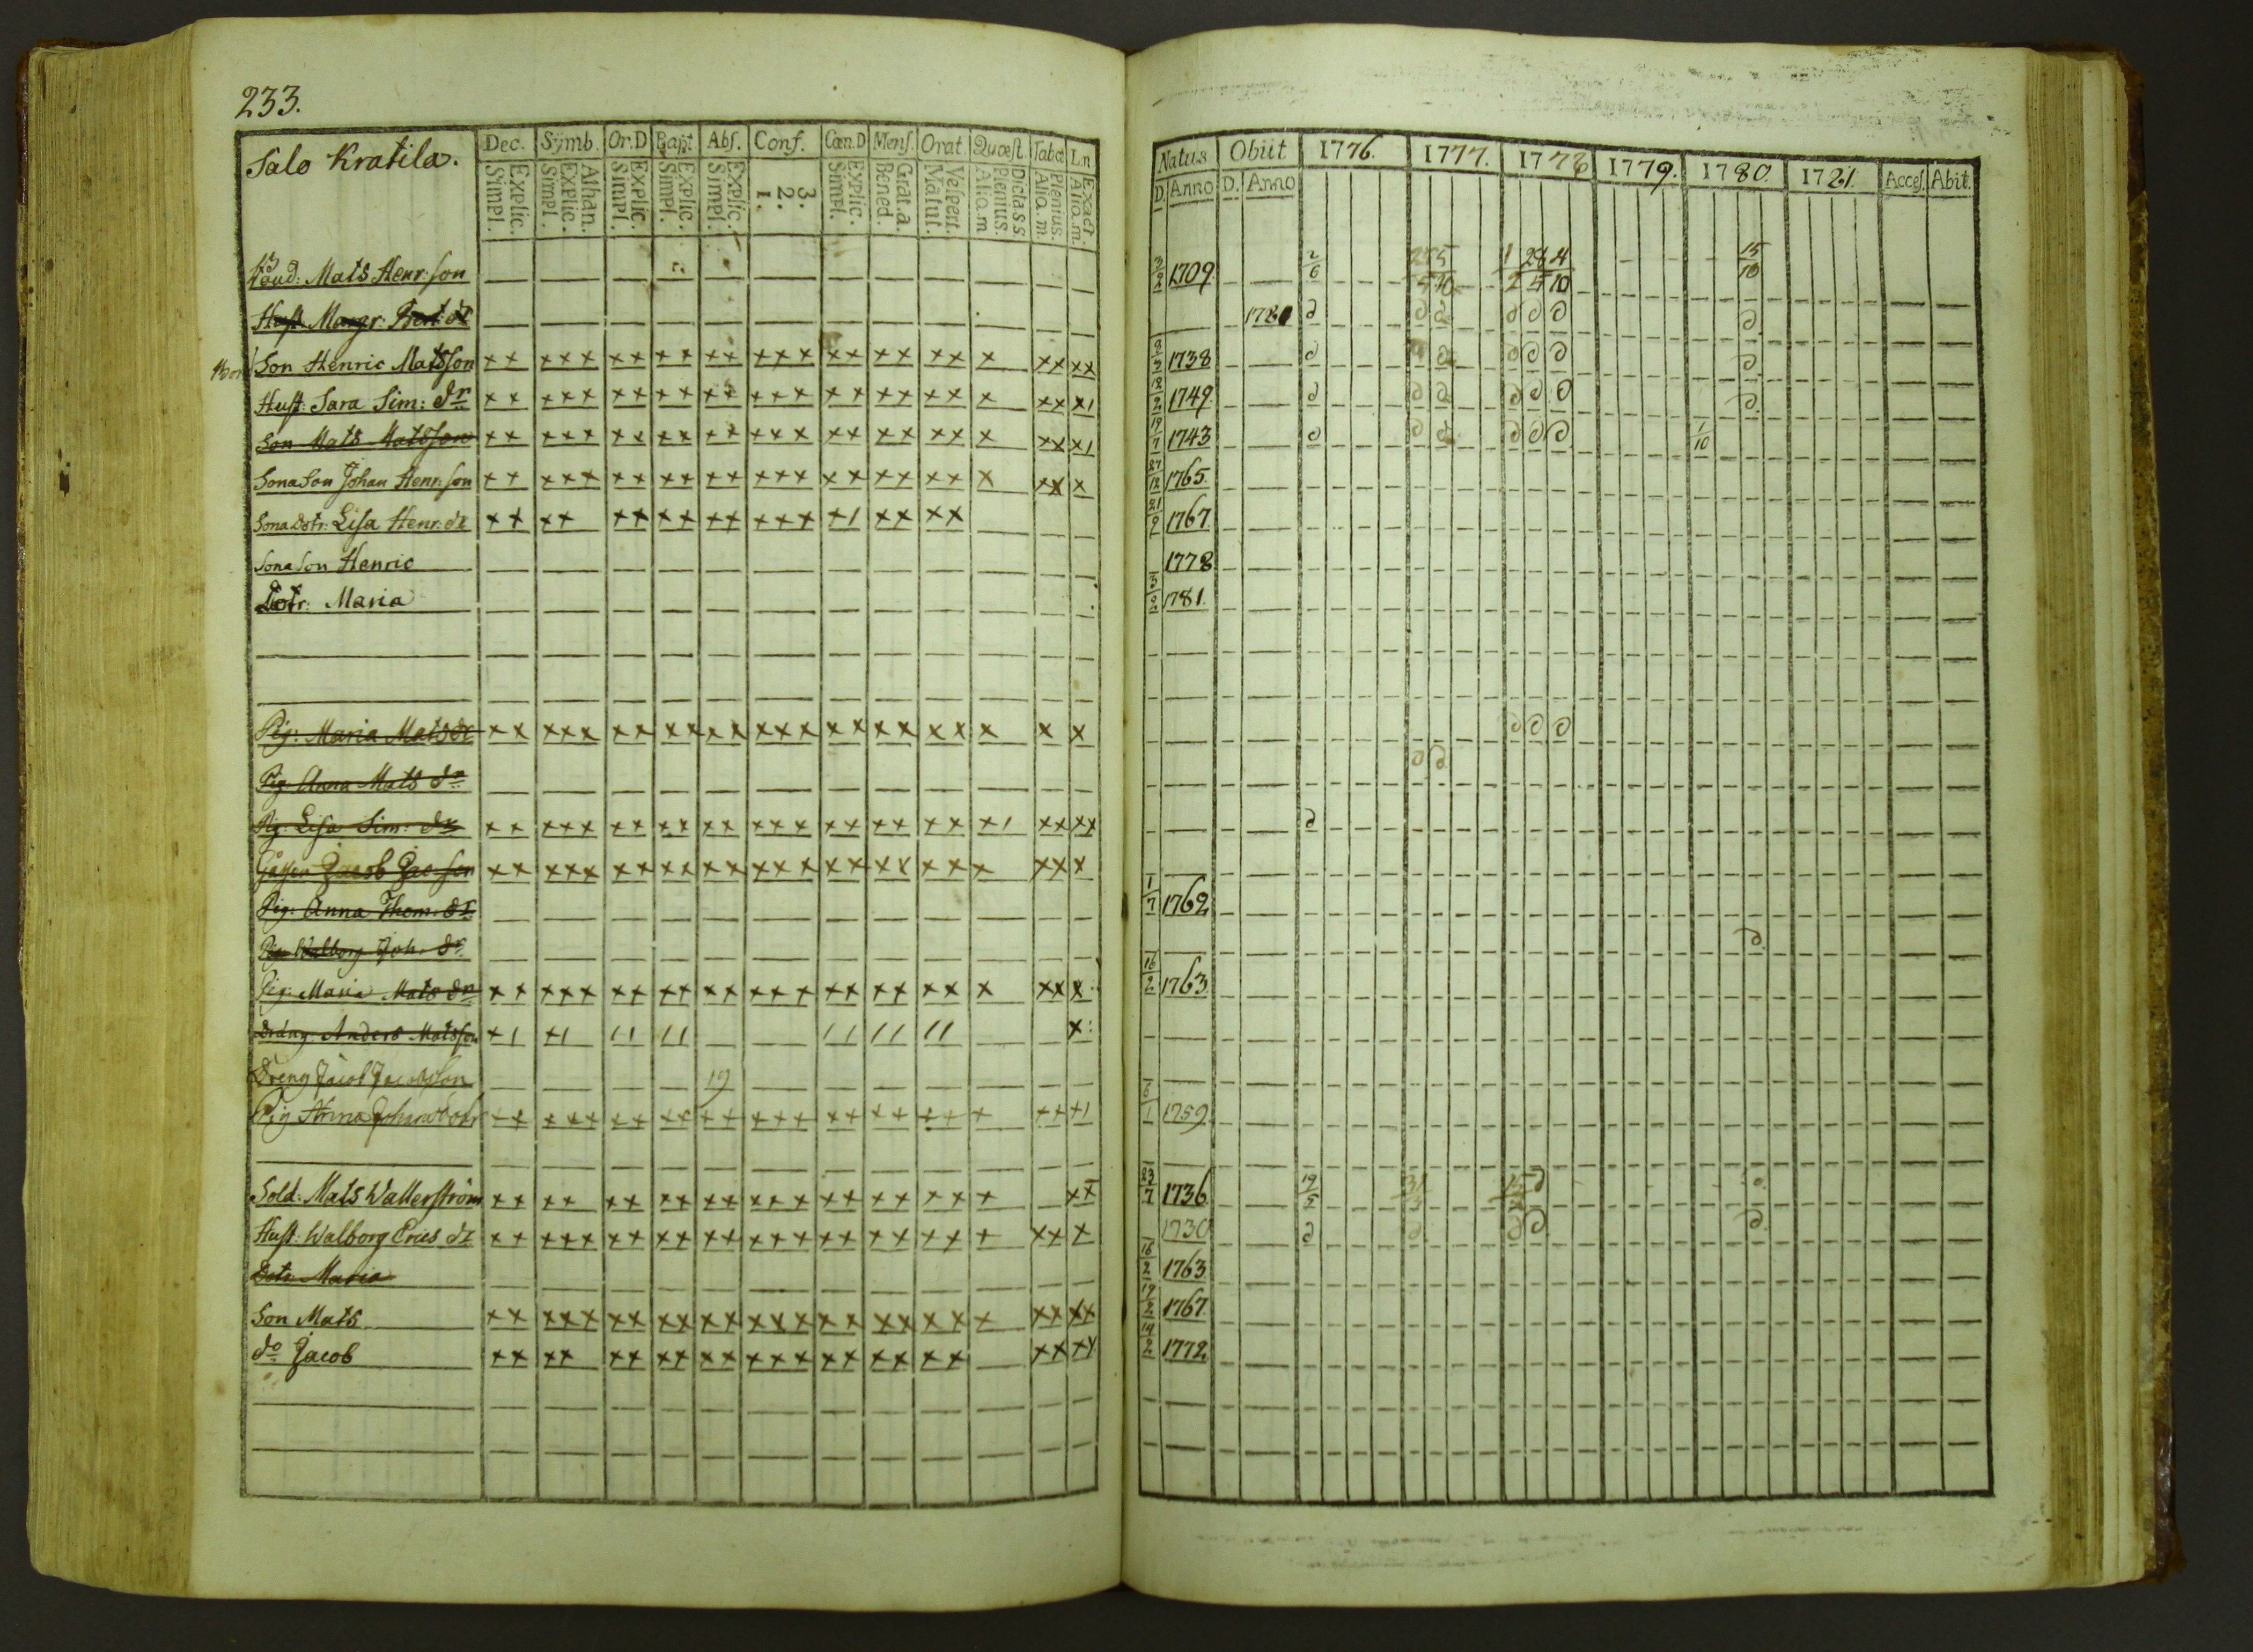 233.
Salo Kratila.
Dec. Symb. Or.D Bapt Abs. Conf. Cœn.D Mens. Orat. Quæst Tabœ Ln
Explic. Simpl. Athan. Explic. Simpl. Explic. Simpl. Explic. Simpl. Explic. Simpl. 3. 2. 1. Explic. Simpl. Grat.a. Bened. Vespert. Matut. Dictass Plenius. Alio.m Plenius. Alio.m. Exact. Alio.m.
Natus Obiit 1776. 1777. 1778 1779. 1780. 1781. Acces. Abit.
D. Anno D. Anno
Mats Henr: son 3/2 1709 2/6 15/10
Hust Margr: 1781
Son Henric Matsson ++ +++ ++ ++ ++ +++ ++ ++ ++ + ++ ++ 8/3 1738
Hust: Sara Sim: dr ++ +++ ++ ++ ++ +++ ++ ++ ++ + ++ +1 12/2 1749
Son Mats Matsson ++ +++ ++ ++ ++ +++ ++ ++ ++ + ++ +1 19/7 1743 1/10
Sona Son Johan Henr: son ++ +++ ++ ++ ++ +++ ++ ++ ++ + ++ + 27/12 1765
Sona Dotr: Lisa Henr: dr ++ ++ ++ ++ ++ +++ +1 ++ ++ 21/2 1767
Sona Son Henric 1778
Dotr: Maria 3/2 1781.
Pig: Maria Mats dr ++ +++ ++ ++ ++ +++ ++ ++ ++ + + +
Pig: Anna Mats dr
Pig: Lisa Sim: dr ++ +++ ++ ++ ++ +++ ++ ++ ++ +1 ++ ++
Gåssen Jacob Jac: son ++ +++ ++ ++ ++ +++ ++ ++ ++ + ++ + 1/7 1762
Pig: Anna Thom: dr
Pig: Walborg Joh: dr
Pig: Maria Mats dr ++ +++ ++ ++ ++ +++ ++ ++ ++ + ++ + 16/2 1763
Dräng: Anders Matsson +1 +1 11 11 11 11 11 +
Dreng Jacob Jacobsson 19
Pig Anna Johansdotr ++ +++ ++ ++ ++ +++ ++ ++ ++ + ++ +1 6/1 1759
Sold: Mats Wallerström ++ ++ ++ ++ ++ +++ ++ ++ ++ + ++ 23/7 1736 19/5
Hust: Walborg Erics dr ++ +++ ++ ++ ++ +++ ++ ++ ++ + ++ + 1730
Dotr: Maria 16/2 1763
Son Mats ++ +++ ++ ++ ++ +++ ++ ++ ++ + ++ ++ 19/2 1767
do Jacob ++ ++ ++ ++ ++ +++ ++ ++ ++ ++ ++ 14/2 1772